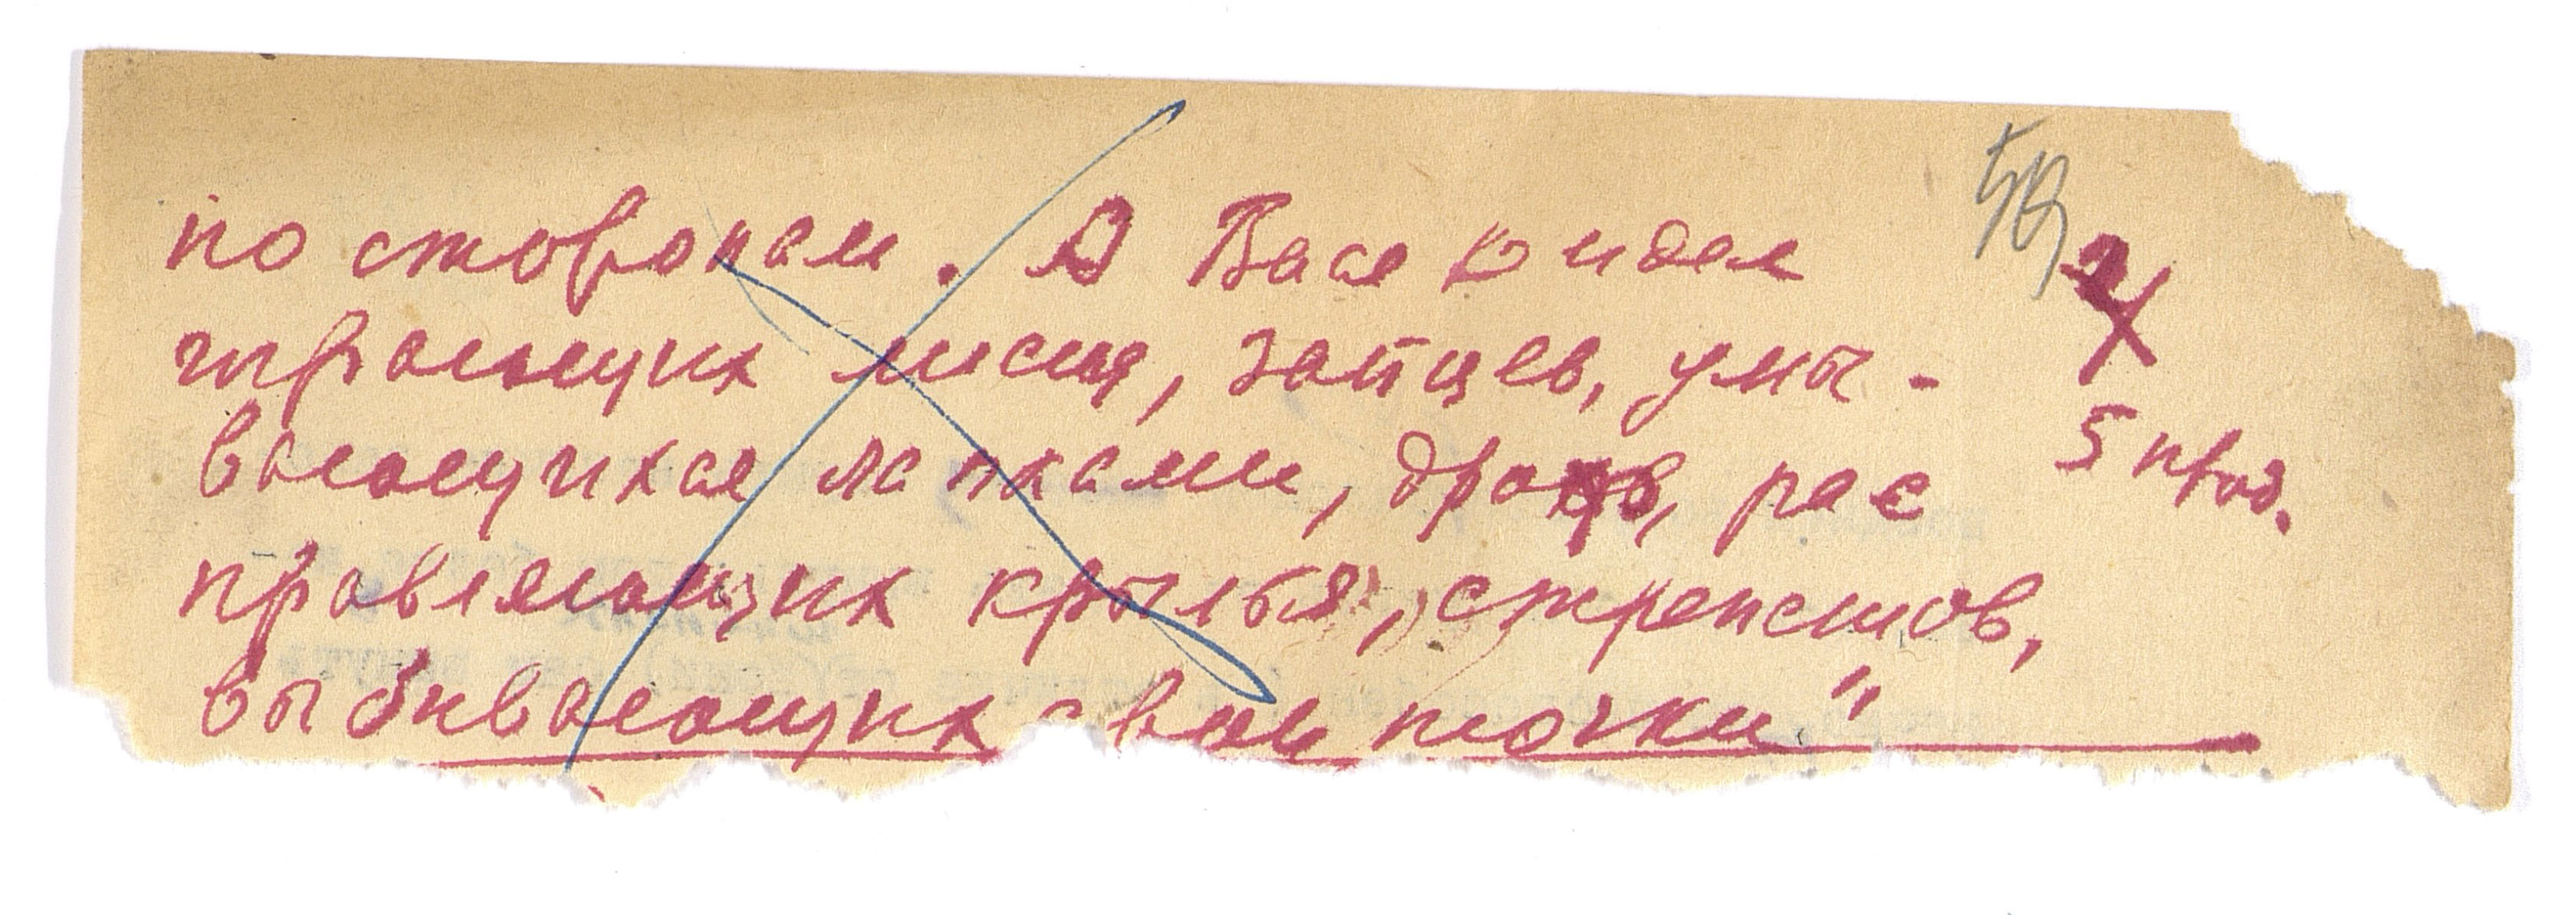 по сторонам. А Вася видел
играющих лисиц, зайцев, умы-
вающихся лапками, дроф, рас
правляющих крылья, стрепетов,
выбивающих свои точки"
5 прод.